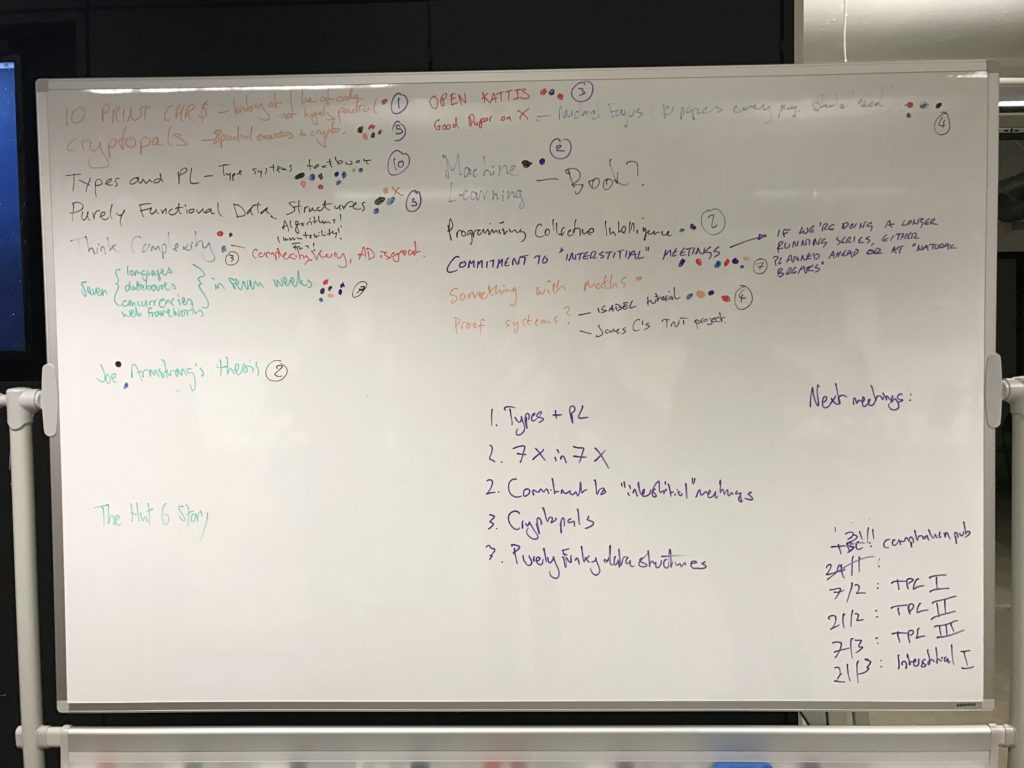 10 PRINT CHR$ – history of 1 line of code, not hugely practical 1
cryptopals – 8 practical exercises in crypto. 5
Types and PL – Type systems textbook 10
Purely Functional Data Structures x 5
Algorithms!
Immutability!
Fun!
Think Complexity 3 Complexity theory, AD is great.
Seven languages databases concurrencies web frameworks in seven weeks 7
Joe Armstrong's thesis 2
The Hut 6 Story
OPEN KATTIS 3
Good Paper on X – Michael Fogus (10 papers every prog. should read) 4
Machine Learning – Book? 2
Programming Collective Intelligence 2
COMMITMENT TO "INTERSTITIAL" MEETINGS 7
IF WE'RE DOING A LONGER
RUNNING SERIES, EITHER
PLANNED AHEAD OR AT "NATURAL
BREAKS"
Something with maths
Proof systems? – ISABEL tutorial 4
– James C's TNT project
1. Types + PL
2. 7 X in 7 X
2. Commitment to "interstitial" meetings
3. Cryptopals
3. Purely Funky data structures
Next meetings:
31/1
TBC: computation pub
24/1 :
7/2 : TPL I
21/2 : TPL II
7/3 : TPL III
21/3 : Interstitial I